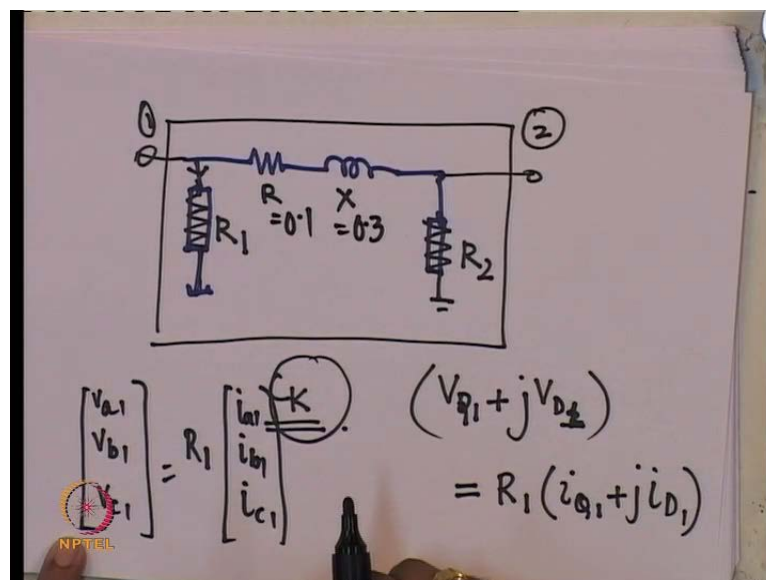 1
2
R
=0.1
X
=0.3
R1
R2
[va1 vb1 vc1] = R1 [ia1 ib1 ic1]
K
(VQ1 + jVD1)
= R1 (iQ1 + jiD1)
NPTEL